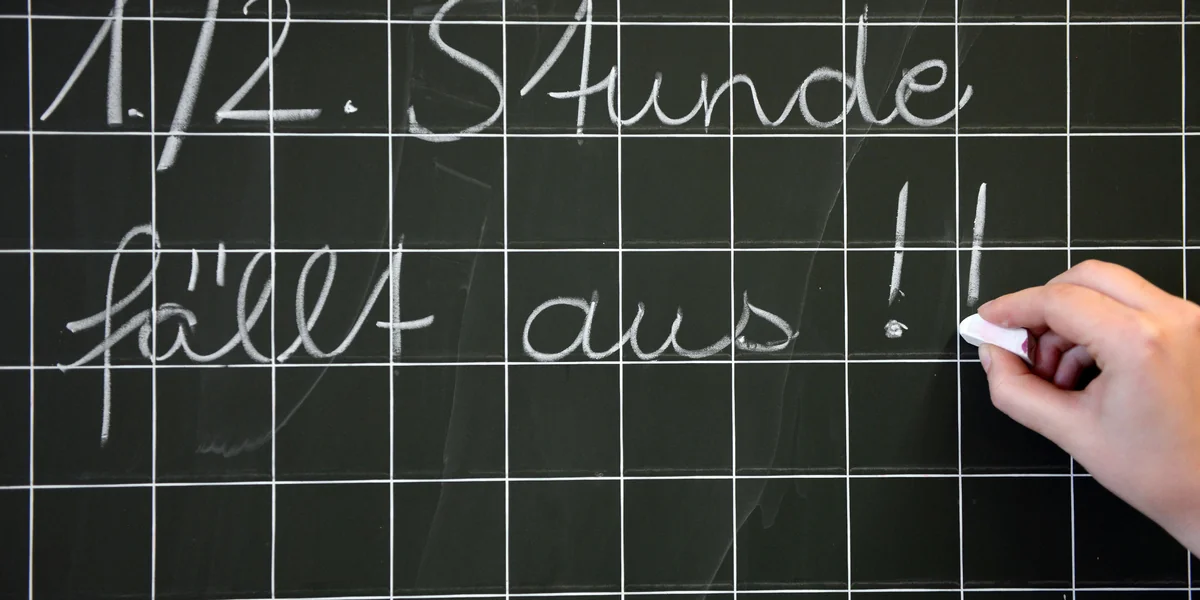 1./2. Stunde
fällt aus !!